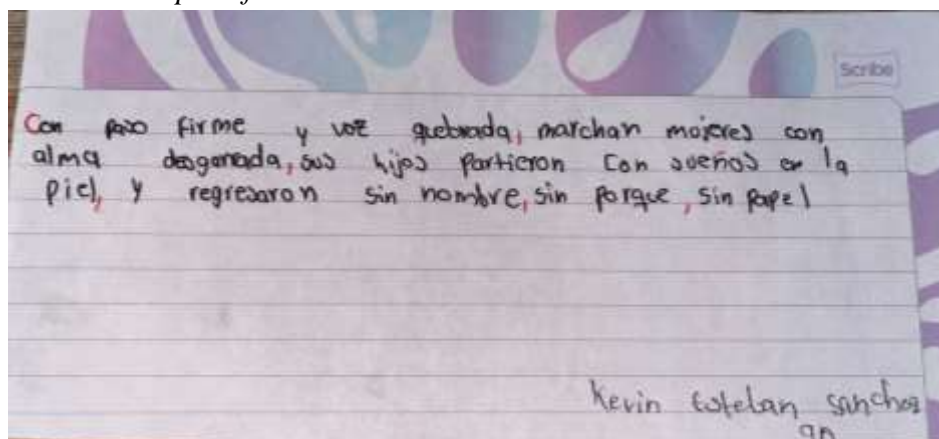 Scribe
Con paso firme y voz quebrada, marchan mojeres con
alma desgarrada, sus hijos partieron con sueños en la
piel, y regresaron sin nombre, sin porque, sin papel
Kevin Esteban Sanchez
9n